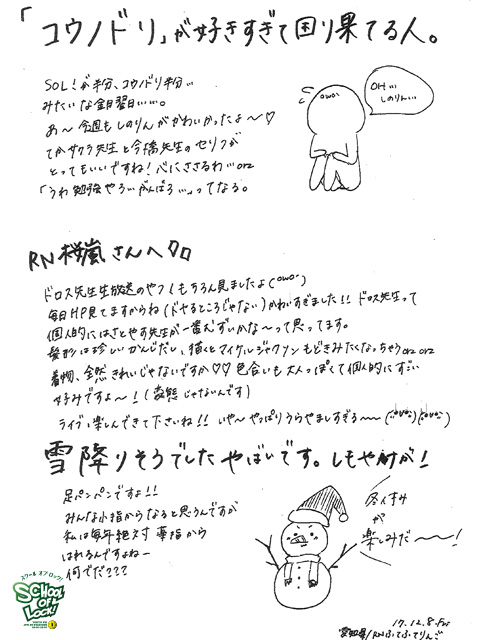 「コウノドリ」が好きすぎて困り果てる人。
SOL!が半分、コウノドリ半分…
みたいな金曜日…。
あ〜今週もしのりんがかわいかったよ〜♡
てかサクラ先生と今橋先生のセリフが
とってもいいですね!心にささるわ…orz
「うわ勉強やろ…がんばろ…」ってなる。
OH…
しのりん…
RN桜嵐さんへ
ドロス先生生放送のやつ!もちろん見ましたよ(^ω^)
毎日HP見てますからね(ドヤるところじゃない)かわいすぎました!!ドロス先生って
個人的にはさとやす先生が一番むずいかな〜って思ってます。
髪形は珍しいかんじだし、描くとマイケルジャクソンもどきみたいなっちゃうorz orz
着物、全然きれいじゃないですか♡♡色合いも大人っぽくて個人的にすごい
好みですよ〜!(変態じゃないんです)
ライブ楽しんできて下さいね!!いや〜やっぱりうらやましすぎる〜〜
雪降りそうでした やばいです。しもやけが!
足パンパンですよ!!
みんな小指からなると思うんですが
私は毎年絶対薬指から
はれるんですよねー
何でだ???
冬休み
が
楽しみだ〜〜!
スクールオブロック!
SCHOOL
OF
LOCK!
17.12.8.fri
愛知県/RNふてふてりんご